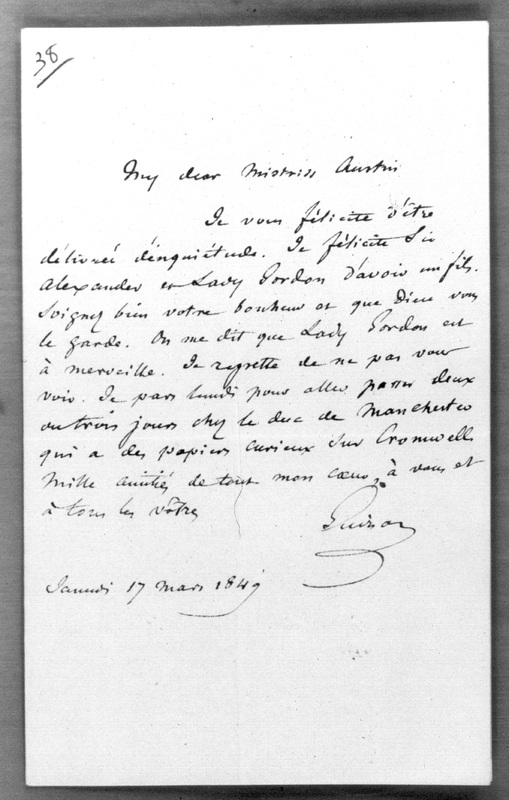 38
My dear Mistriss Austin
Je vous félicite d'être
délivrée d'inquiétude. Je félicite Sir
Alexander et Lady Gordon d'avoir un fils.
Soignez bien votre bonheur et que Dieu vous
le garde. On me dit que Lady Gordon est
à merveille. Je regrette de ne pas vous
voir. Je pars lundi pour aller passer deux
ou trois jours chez le duc de Manchester
qui a des papiers curieux sur Cromwell.
Mille amitiés de tout mon cœur, à vous et
à tous les vôtres
Guizot
Samedi 17 mars 1849